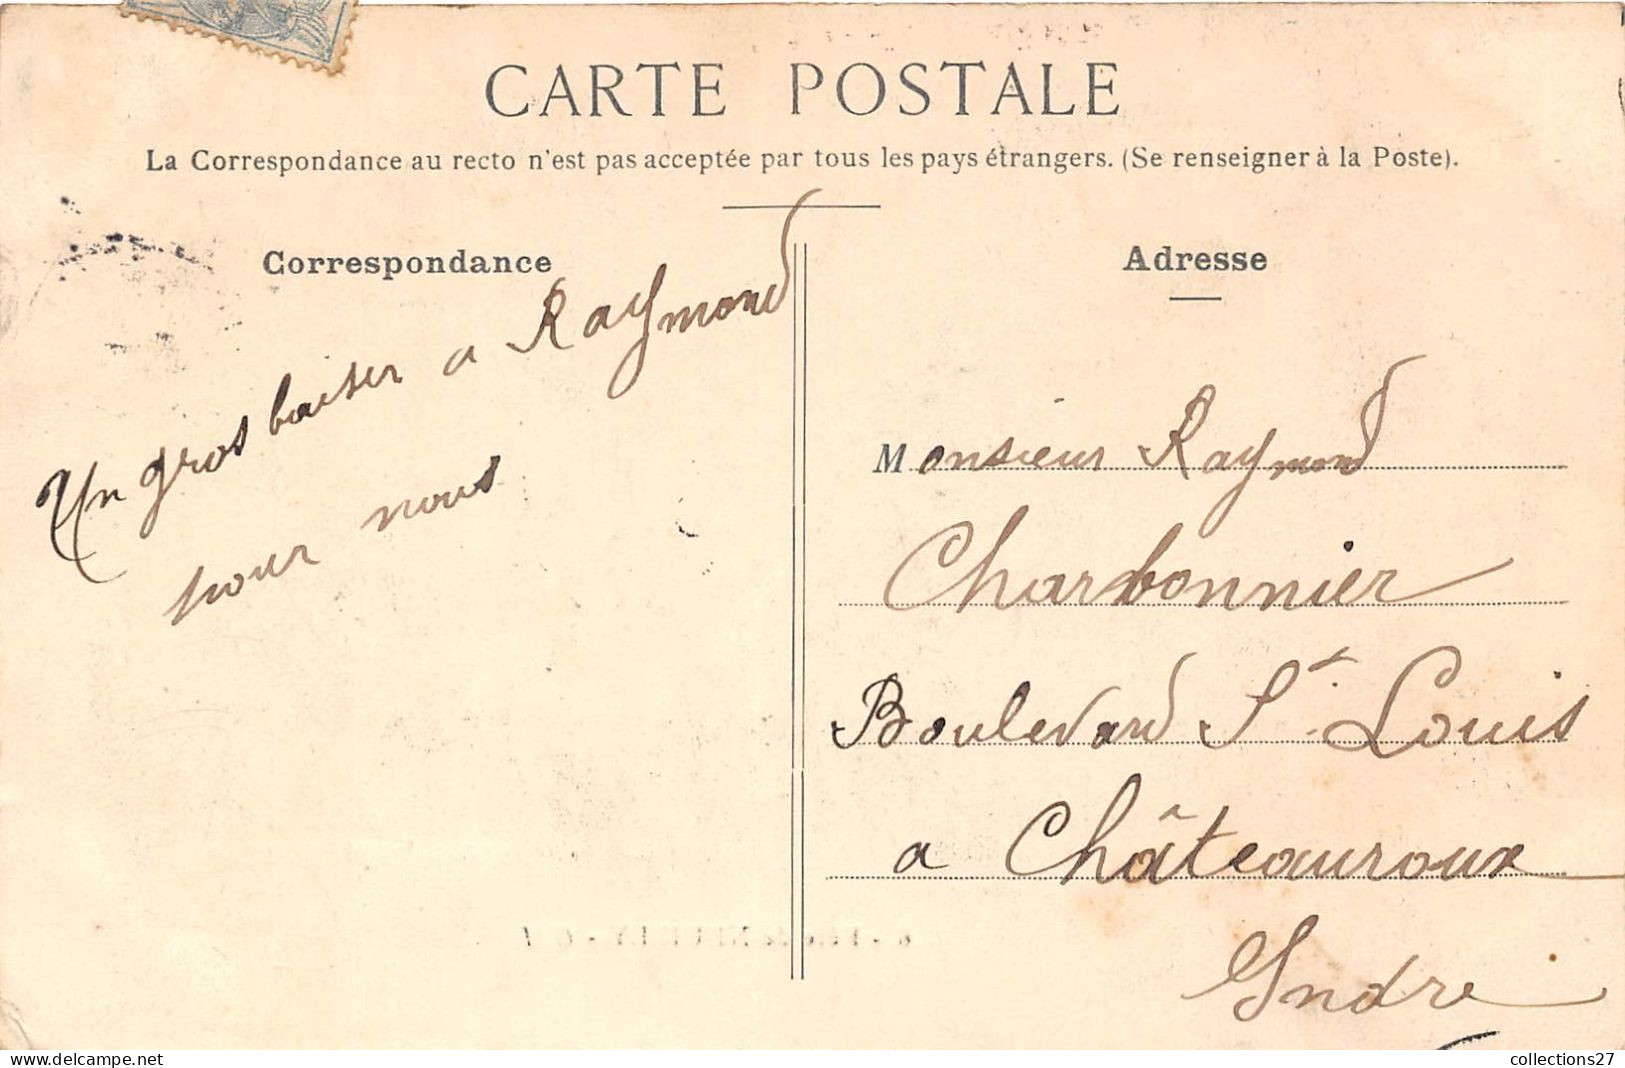 CARTE POSTALE
La Correspondance au recto n'est pas acceptée par tous les pays étrangers. (Se renseigner à la Poste).
Correspondance
Un gros baiser a Raymond
pour nous
Adresse
Monsieur Raymond
Charbonnier
Boulevard St. Louis
a Châteauroux
Indre
collections27